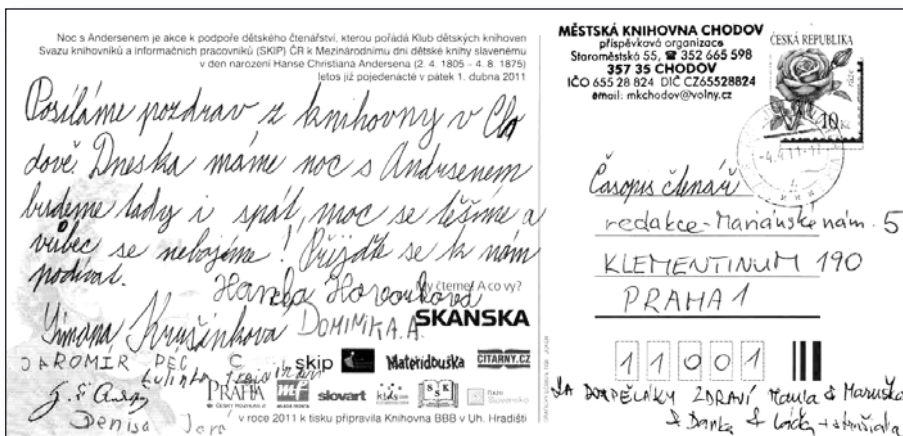 Noc s Andersenem je akce k podpoře dětského čtenářství, kterou pořádá Klub dětských knihoven
Svazu knihovníků a informačních pracovníků (SKIP) ČR k Mezinárodnímu dni dětské knihy slavenému
v den narození Hanse Christiana Andersena (2. 4. 1805 – 4. 8. 1875)
letos již pojedenácté v pátek 1. dubna 2011
Posíláme pozdrav z knihovny v Cho
dově. Dneska máme noc s Andrsenem
budeme tady i spát, moc se těšíme a
vůbec se nebojíme! Přijďte se k nám
podívat.
Hanka
My čteme! A co vy?
SKANSKA
DOMINIKA.A.
JAROMIR PEC
skip
Mateřídouška
CITARNY.CZ
PRAHA
mf
slovart
kids
SK
Denisa Jará
v roce 2011 k tisku připravila Knihovna BBB v Uh. Hradišti
MĚSTSKÁ KNIHOVNA CHODOV
příspěvková organizace
Staroměstská 55, ☎ 352 665 598
357 35 CHODOV
IČO 655 28 824 DIČ CZ65528824
email: mkchodov@volny.cz
ČESKÁ REPUBLIKA
růže
10 Kč
Časopis čtenář
redakce-Mariánské nám. 5
KLEMENTINUM 190
PRAHA 1
11001
ZA DOSPĚLÁKY ZDRAVÍ & Maruška
& Danka &